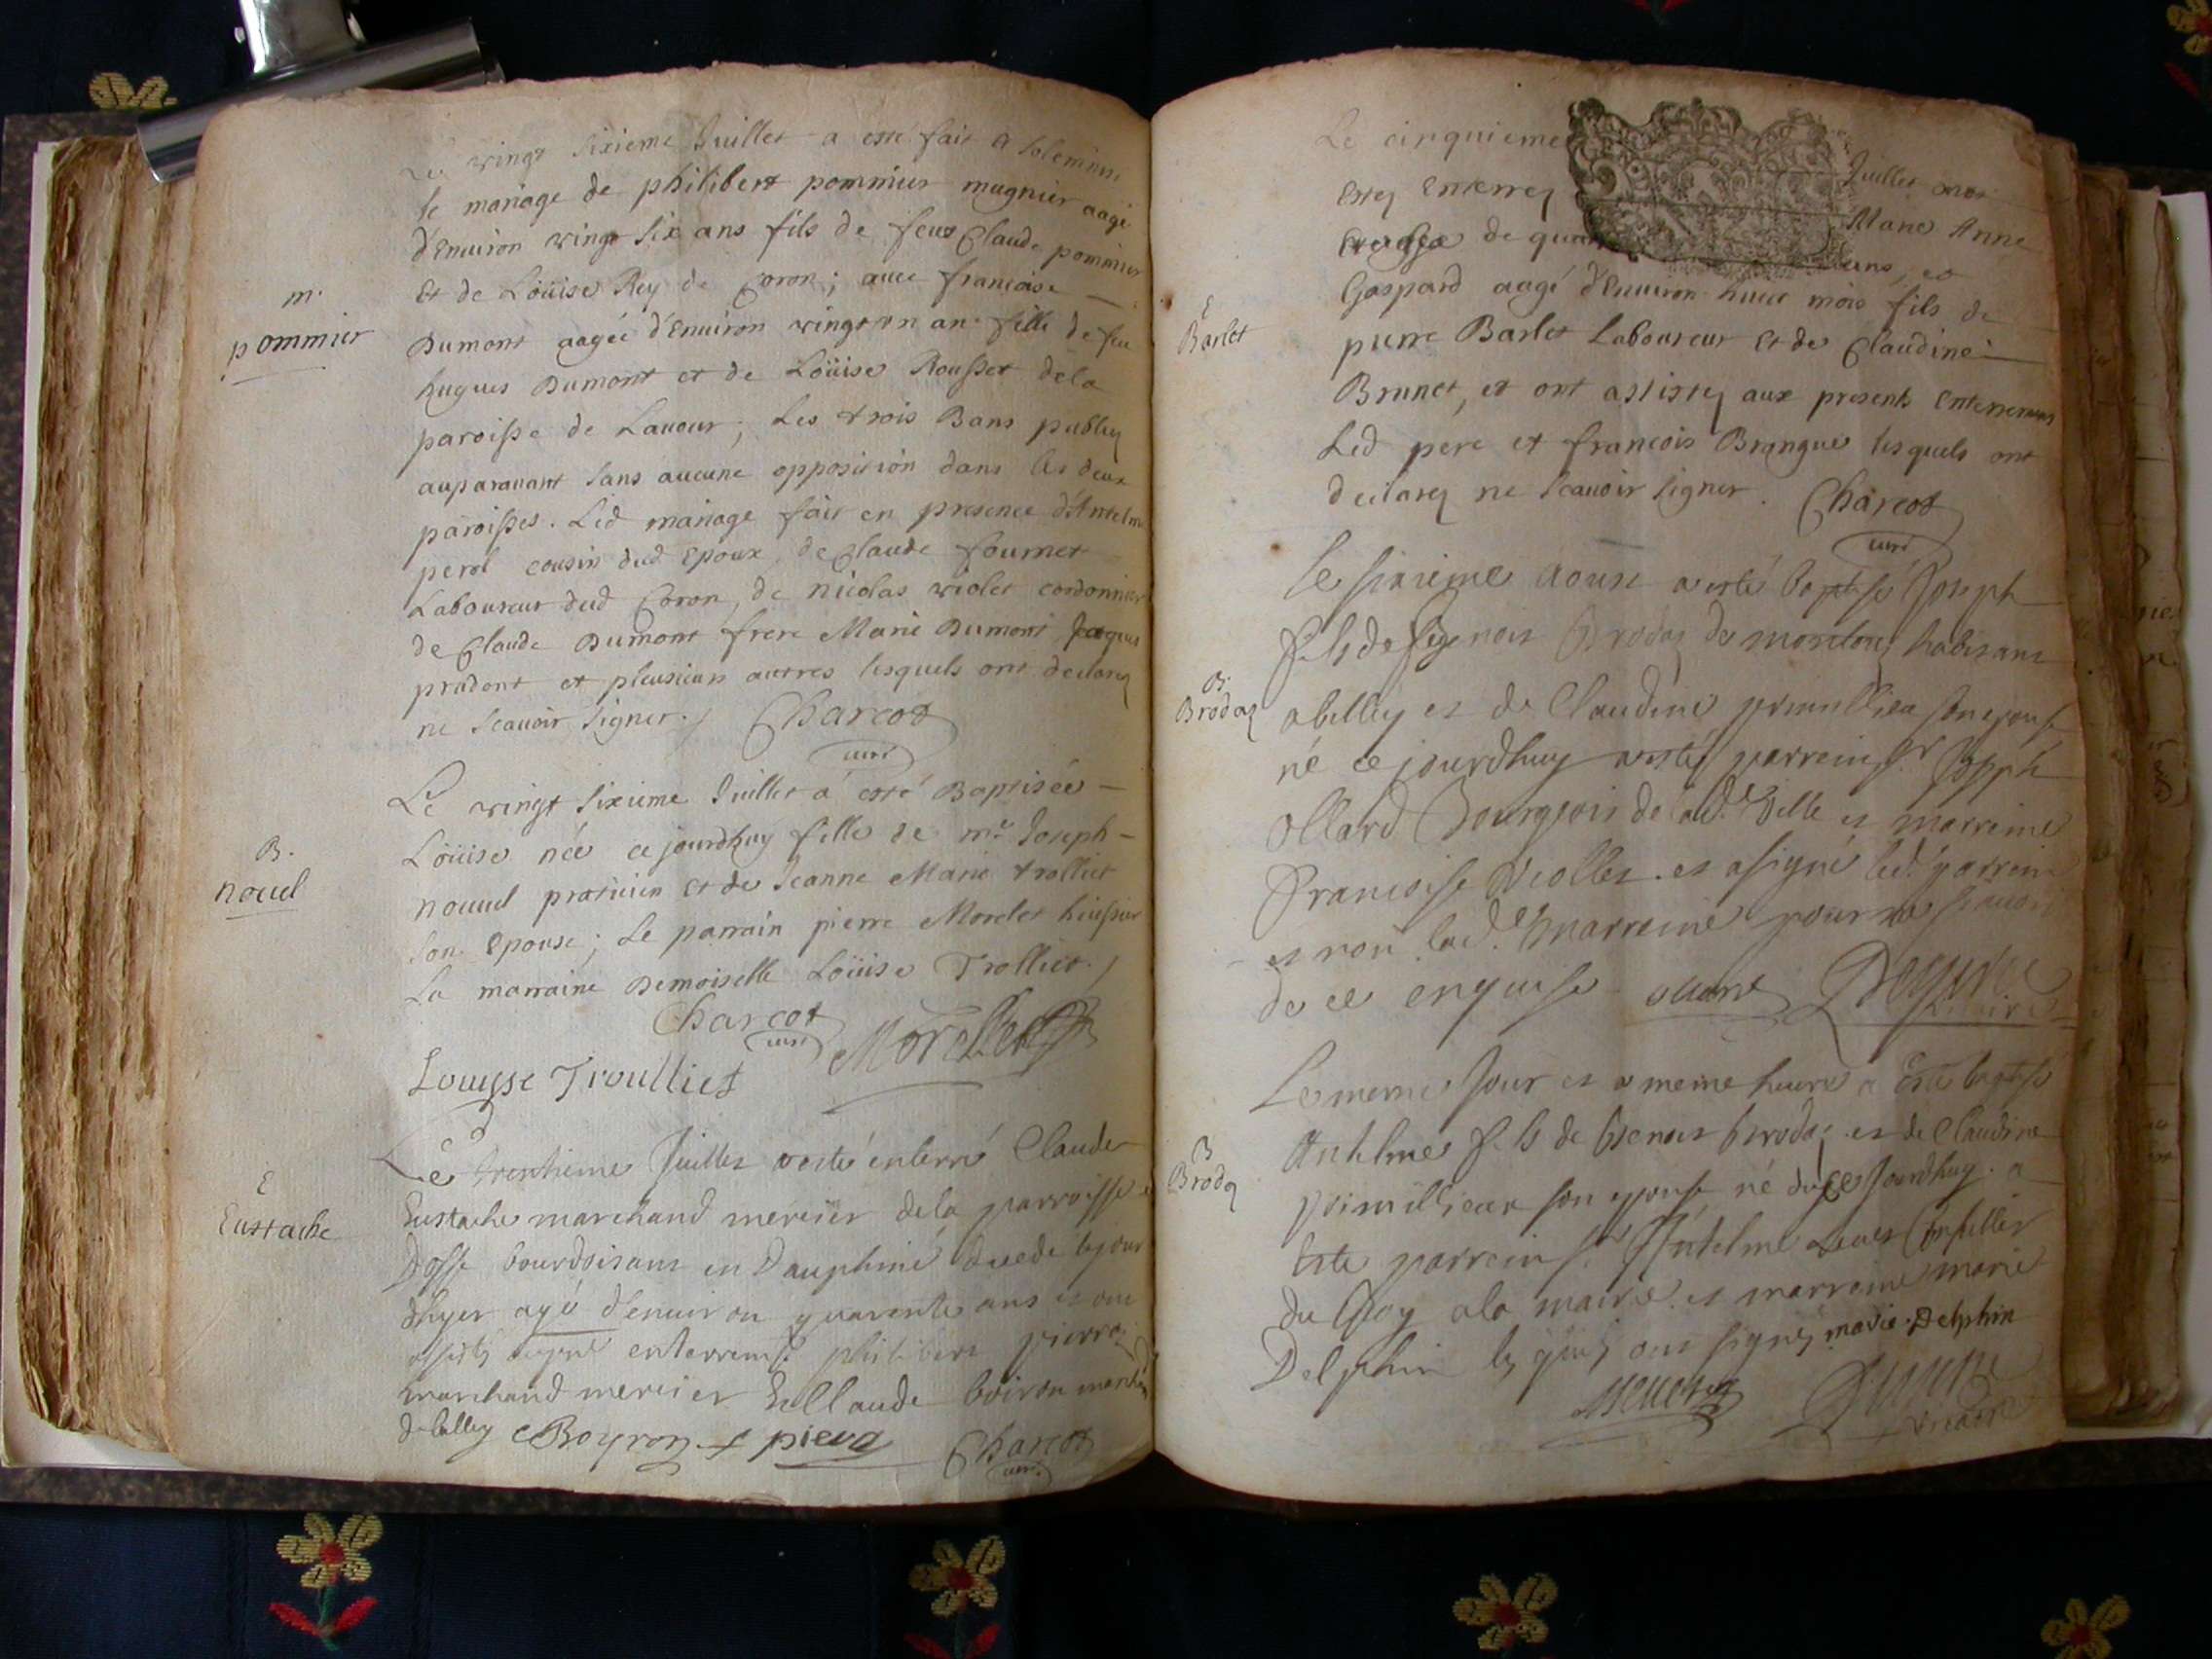 Le vingt sixieme Juillet a esté fait & solemnisé
le mariage de philibert pommier magnier aagé
d'Enuiron vingt six ans fils de feus Claude pommier
Et de Loüise Rey de Coron; auec francoise
m.
pommier
Dumont aagée d'Enuiron vingt un an fille de feu
hugues Dumont et de Loüise Rousset de la
paroisse de Lauour; Les trois Bans publiez
auparauant sans aucune opposition dans les deux
paroisses. Led mariage fait en presence d'Antelme
perol cousin dud Epoux, de Claude fournet
Laboureur dud Coron, de nicolas violet cordonnier
de Claude Dumont frere Marie Dumont Jaques
prudont et plusieurs autres lesquels ont declarez
ne scauoir signer. Charcot
curé
Le vingt sixieme Juillet a esté Baptisée
Loüise née ce jourdhuy fille de mre Joseph
B.
nouel
nouuel praticien et de Jeanne Marie trolliet
son Epouse; Le parrain pierre Morelet huissier
La marraine Demoiselle Loüise Trolliet.
Charcot
curé
Morellet
Louyse Troulliet
Le trentieme Juillet a esté enterré Claude
E
Eustache
Eustache marchand mercier de la parroisse
Dosse bourdoisans en Dauphiné decedé le jour
dhyer agé d'enuiron quarente ans et ont
philibert pierra
marchand mercier Et Claude boiron marchand
de belley CBoyron piera Charcot
curé
Le cinquieme Juillet ont
Estez Enterrez Marie Anne
de ans, et
Gaspard aagé d'Enuiron huict mois fils de
E
Barlet
pierre Barlet Laboureur et de Claudine
Brunet, et ont assistez aux presents Enterrements
Led pere et francois Brangue lesquels ont
declarez ne scauoir signer. Charcot
curé
Le sixieme aoust a esté baptisé Joseph
fils de Brodaz de habitant
B.
Brodaz
a belley et de Claudine primillieu son epouse
né ce jourdhuy a esté parrein Sr Joseph
ollard Bourgeois de lad. Ville et marreine
Francoise Viollet. et a signé led. parrein
et non lad. marreine pour ne scauoir
de ce enquise ollard
vicaire
Le meme Jour et a meme heure a Esté baptisé
B
Brodaz
Anthelme fils de Benoit brodaz et de Claudine
primillieux son epouse né ce Jourdhuy. a
Esté parrein Sr Anthelme Conseiller
du Roy a la mairie et marreine marie
Delphin lesquels ont signez marie Delphin
vicaire